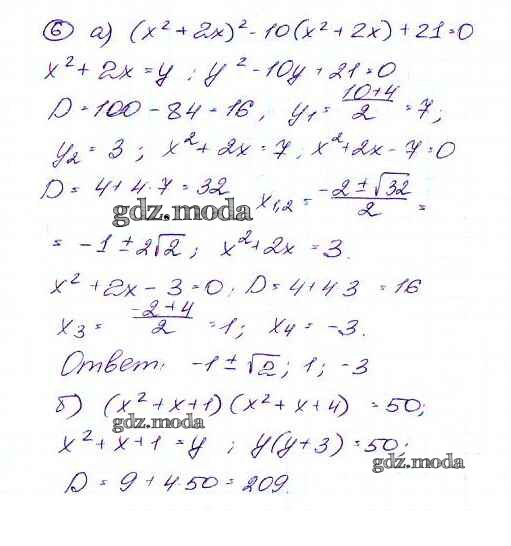 6 а) (x² + 2x)² - 10(x² + 2x) + 21 = 0
x² + 2x = y ; y² - 10y + 21 = 0
D = 100 - 84 = 16, y₁ = (10+4)/2 = 7;
y₂ = 3 ; x² + 2x = 7 ; x² + 2x - 7 = 0
D = 4 + 4·7 = 32 x₁,₂ = (-2 ± √32)/2 =
gdz.moda
= -1 ± 2√2 ; x² + 2x = 3.
x² + 2x - 3 = 0; D = 4 + 4·3 = 16
x₃ = (-2+4)/2 = 1; x₄ = -3.
Ответ: -1 ± √2 ; 1 ; -3
б) (x² + x + 1)(x² + x + 4) = 50;
gdz.moda
x² + x + 1 = y ; y(y+3) = 50;
gdz.moda
D = 9 + 4·50 = 209.